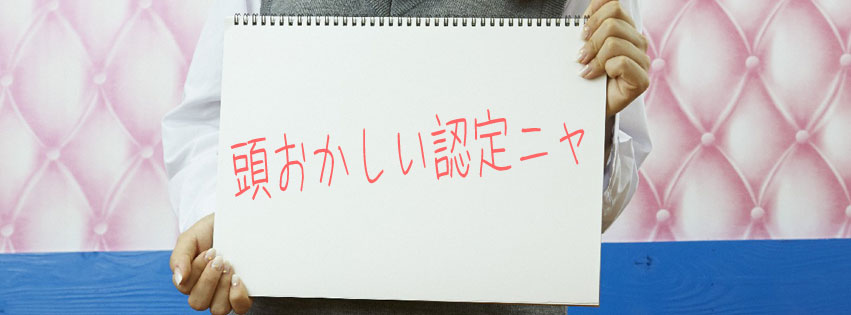 頭おかしい認定ニャ